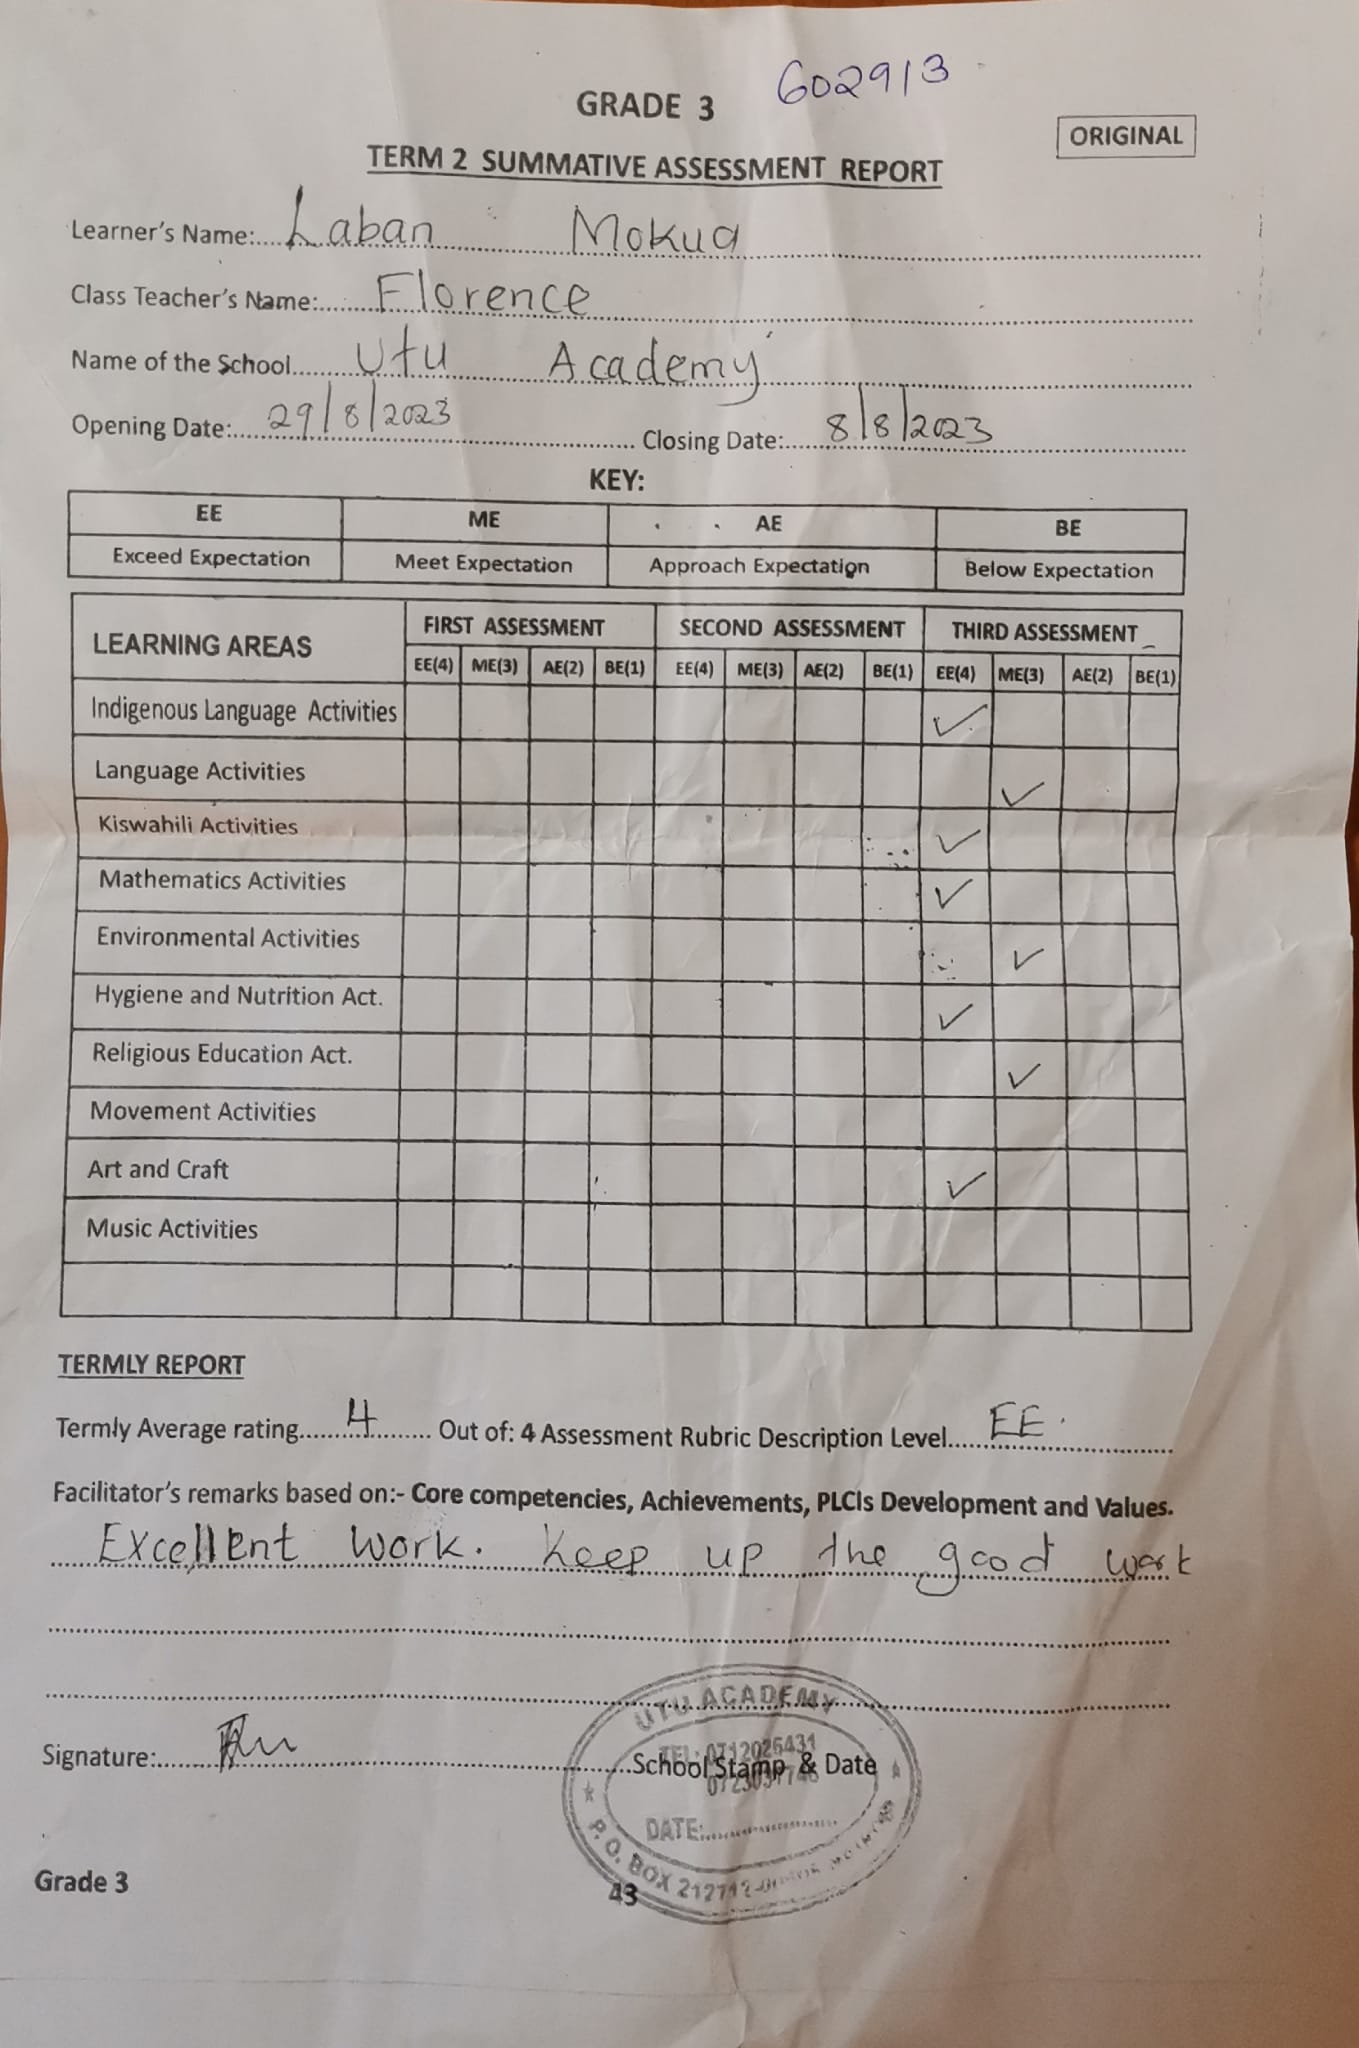 602913
GRADE 3
ORIGINAL
TERM 2 SUMMATIVE ASSESSMENT REPORT
Learner's Name:....Laban Mokua
Class Teacher's Name:....Florence
Name of the School....Utu Academy
Opening Date:....29/8/2023 Closing Date:....8/8/2023
KEY:
EE ME AE BE
Exceed Expectation Meet Expectation Approach Expectation Below Expectation
LEARNING AREAS FIRST ASSESSMENT SECOND ASSESSMENT THIRD ASSESSMENT
EE(4) ME(3) AE(2) BE(1) EE(4) ME(3) AE(2) BE(1) EE(4) ME(3) AE(2) BE(1)
Indigenous Language Activities ✓
Language Activities ✓
Kiswahili Activities ✓
Mathematics Activities ✓
Environmental Activities ✓
Hygiene and Nutrition Act. ✓
Religious Education Act. ✓
Movement Activities
Art and Craft ✓
Music Activities
TERMLY REPORT
Termly Average rating....4.... Out of: 4 Assessment Rubric Description Level....EE.
Facilitator's remarks based on:- Core competencies, Achievements, PLCIs Development and Values.
Excellent work. Keep up the good work
Signature:.... School Stamp & Date
UTU ACADEMY
TEL: 0712026431
DATE:....
P.O. BOX
Grade 3
43